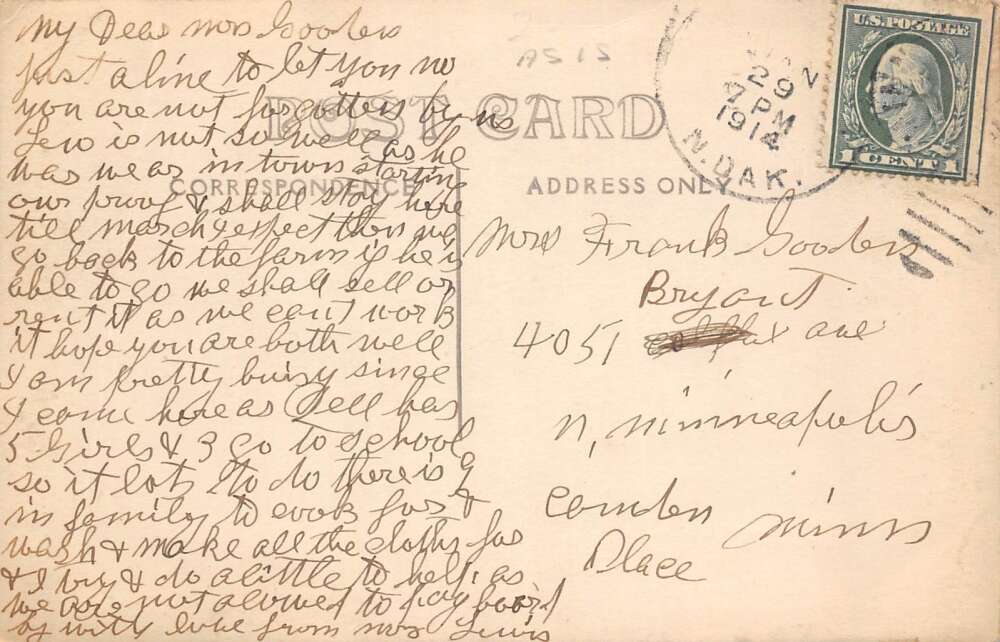 My Dear Mrs Gooden
Just a line to let you no
you are not forgotten by us
Lew is not so well as he
was we are in town staring
our prove & shall stay here
till march & expect then we
go back to the farm if he is
able to go we shall sell or
rent it as we can't work
it hope you are both well
I am pretty buisy since
I come here as Nell has
5 Girls & 3 go to school
so it lots to do there is 9
in family to cook for &
wash & make all the cloths for
& I try & do a little to help as
we are not alowed to pay board
by with love from mrs Lewis
AS IS
POST CARD
CORRESPONDENCE
ADDRESS ONLY
29
7 PM
1914
N. DAK.
U.S. POSTAGE
1 CENT 1
Mrs Frank Gooden
Bryant
4051 ave
N, minneapolis
Camden minn
Place